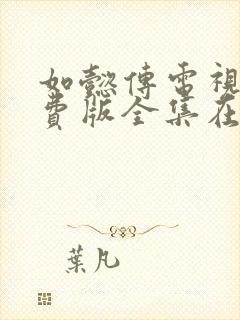 如懿傳電視
費版全集在
葉凡